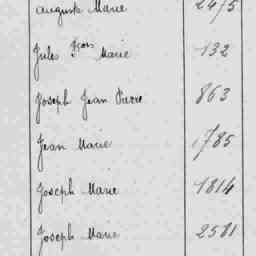 Auguste Marie 2475
Jules Fçois Marie 132
Joseph Jean Pierre 863
Jean Marie 1785
Joseph Marie 1814
Joseph Marie 2581